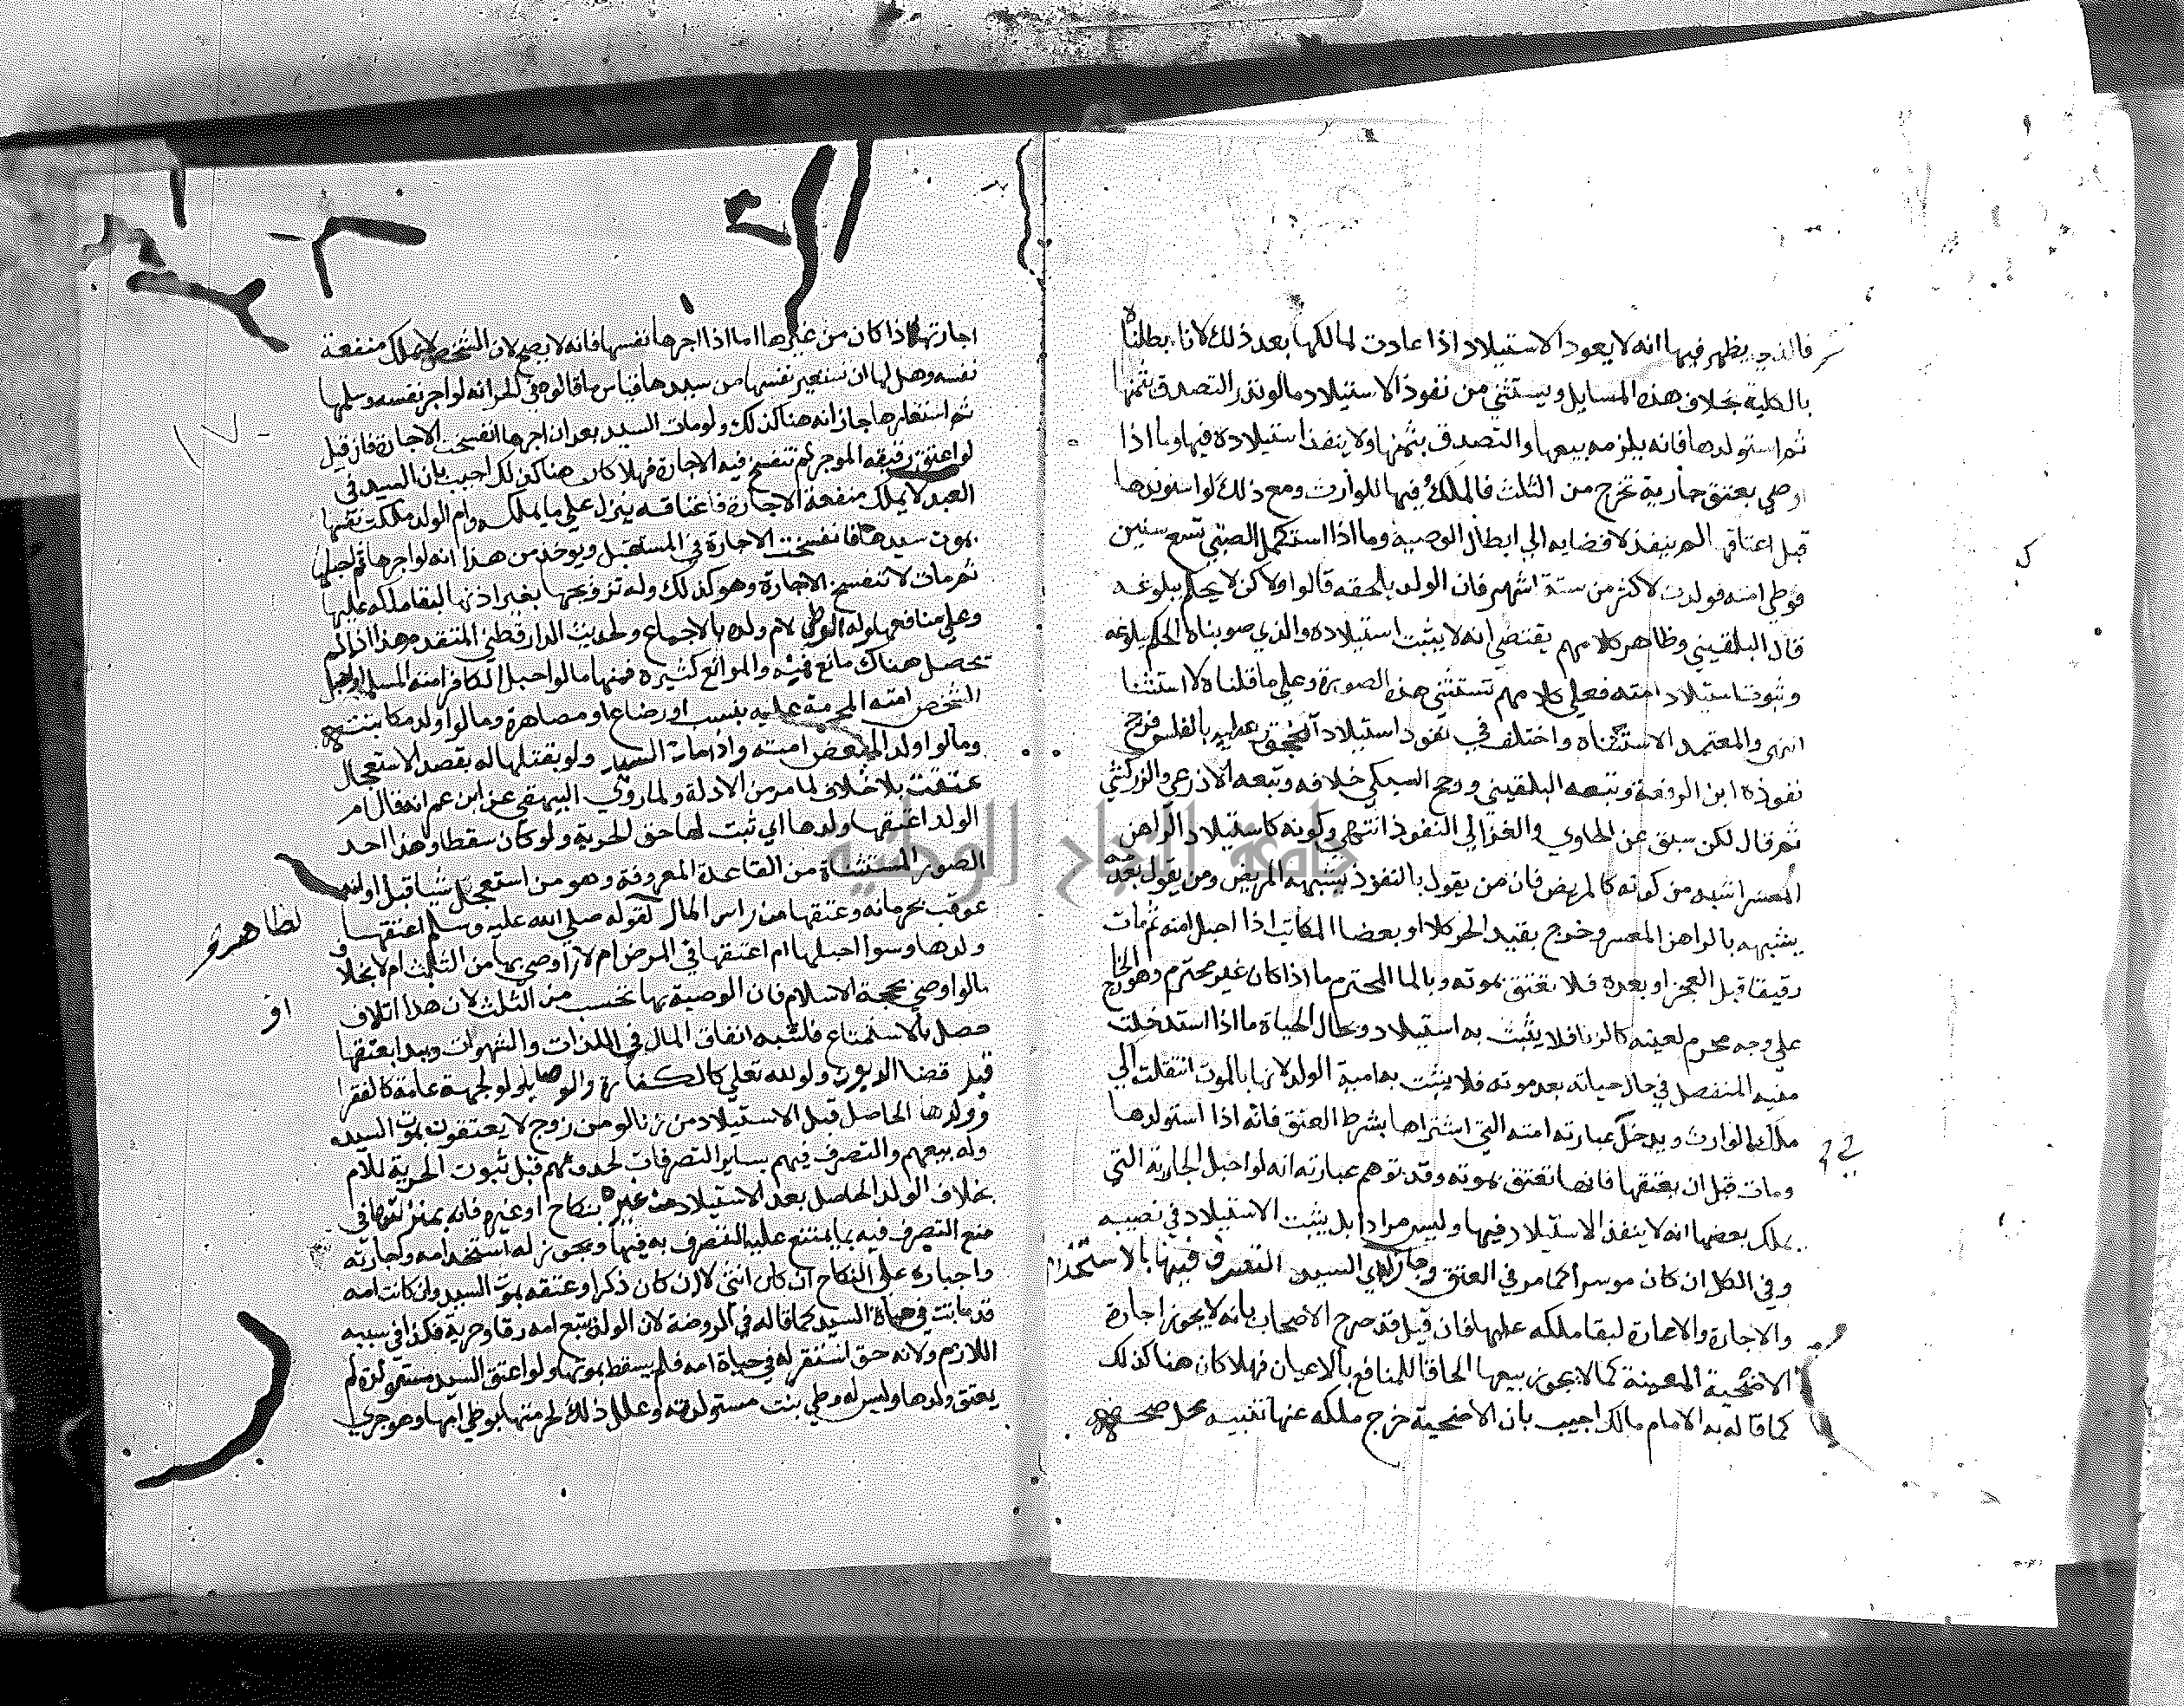 فالذي يظهر فيها انه لا يعود الاستيلاد اذا عادت لمالكها بعد ذلك لانا بطلناه
بالكلية بخلاف هذه المسايل ويستثني من نفوذ الاستيلاد مالو نذر التصدق بثمنها
ثم استولدها فانه يلزمه بيعها والتصدق بثمنها ولا ينفذ استيلاده فيها وما اذا
اوصي بعتق جارية تخرج من الثلث فالملك فيها للوارث ومع ذلك لو استولدها
قبل اعتاقها لم ينفذ لافضايه الي ابطال الوصية وما اذا استكمل الصبي تسع سنين
فوطي امته فولدت لاكثر من ستة اشهر فان الولد يلحقه قالوا ولا كن لا يحكم ببلوغه
قال البلقيني وظاهر كلامهم يقتضي انه لا يثبت استيلاده والذي صوبناه الحكم ببلوغه
وثبوت استيلاد امته فعلي كلامهم تستثني هذه الصورة وعلي ما قلناه لا استثنا
انتهي والمعتمد الاستثناه واختلف في نفوذ استيلاد المحجور عليه بالفلس فرجح
نفوذه ابن الرفعة وتبعه البلقيني ورجح السبكي خلافه وتبعه الاذرعي والزركشي
ثم قال لكن سبق عن الحاوي والغزالي النفوذ انتهي وكونه كاستيلاد الراهن
المعسر اشبه من كونه كالمريض فان من يقول بالنفوذ يشبهه المريض ومن يقول بعدمه
يشبهه بالراهن المعسر وخرج بقيد الحر كلا او بعضا المكاتب اذا احبل امته ثم مات
رقيقا قبل العجز او بعده فلا تعتق بموته وبالما المحترم ما اذا كان غير محترم وهو الخارج
علي وجه محرم لعينه كالزنا فلا يثبت به استيلاد وبحال الحياة ما اذا استدخلت
منيه المنفصل في حال حياته بعد موته فلا يثبت به امية الولد لانها بالموت انتقلت الي
ملك الوارث ويدخل عبارته امته التي اشتراها بشرط العتق فانه اذا استولدها
ومات قبل ان يعتقها فانها تعتق بموته وقد توهم عبارته انه لو احبل الجارية التي
يملك بعضها انه لا ينفذ الاستيلاد فيها وليس مرادا بل يثبت الاستيلاد في نصيبه
وفي الكل ان كان موسرا كما مر في العتق وجاز له اي السيد التصرف فيها بالاستخدام
والاجارة والاعارة لبقا ملكه عليها فان قيل قد صرح الاصحاب بانه لا يجوز اجارة
الاضحية المعينة كما لا يجوز بيعها الحاقا للمنافع بالاعيان فهلا كان هنا كذلك
كما قاله به الامام مالك اجيب بان الاضحية خرج ملكه عنها تنبيه محل صحة
اجارتها اذا كان من غيرها اما اذا اجرها نفسها فانه لا يصح لان الشخص لا يملك منفعة
نفسه وهل لها ان تستعير نفسها من سيدها قياس ما قالوه في الحر انه لو اجر نفسه وسلمها
ثم استعارها جاز انه هنا كذلك ولو مات السيد بعد ان اجرها انفسخت الاجارة فان قيل
لو اعتق رقيقه الموجر لم تنفسخ فيه الاجارة فهلا كان هنا كذلك اجيب بان السيد في
العبد لا يملك منفعة الاجارة فاعتاقه ينزل علي ما يملكه وام الولد ملكت نفسها
بموت سيدها فانفسخت الاجارة في المستقبل ويوخذ من هذا انه لو اجرها ثم احبلها
ثم مات لا تنفسخ الاجارة وهو كذلك وله تزويجها بغير اذنها لبقا ملكه عليها
وعلي منافعها وله الوطي لام ولده بالاجماع ولحديث الدارقطني المتقدم وهذا اذا لم
يحصل هناك مانع فيه والموانع كثيرة فمنها ما لو احبل الكافر امته المسلمة او احبل
الشخص امته المحرمة عليه بنسب او رضاع او مصاهرة وما لو اولد مكاتبته
وما لو اولد المبعض امته واذا مات السيد ولو بقتلها له بقصد الاستعجال
عتقت بلا خلاف لما مر من الادلة ولما روي البيهقي عن ابن عمر انه قال ام
الولد اعتقها ولدها اي ثبت لها حق الحرية ولو كان سقطا وهذا احد
الصور المستثناة من القاعدة المعروفة وهو من استعجل شيا قبل اوانه
عوقب بحرمانه وعتقها من راس المال لقوله صلي الله عليه وسلم اعتقها
لظاهر
ولدها وسوا احبلها ام اعتقها في المرض ام لا او اوصي بها من الثلث ام لا بخلاف
مالو اوصي بحجة الاسلام فان الوصية بها تحسب من الثلث لان هذا اتلاف
حصل بالاستمتاع فاشبه انفاق المال في اللذات والشهوات ويبدا بعتقها
قبل قضا الديون ولو لله تعلي كالكفارة والوصايا ولو لجهة عامة كالفقرا
وولدها الحاصل قبل الاستيلاد من زنا او من زوج لا يعتقون بموت السيد
وله بيعهم والتصرف فيهم بساير التصرفات لحدوثهم قبل ثبوت الحرية للام
بخلاف الولد الحاصل بعد الاستيلاد من غيره بنكاح او غيره فانه بمنزلتها في
منع التصرف فيه بما يمتنع عليه التصرف به فيها ويجوز له استخدامه واجارته
واجباره علي النكاح ان كان انثي لا ان كان ذكرا وعتقه بموت السيد وان كانت امه
قد ماتت في حياة السيد كما قاله في الروضة لان الولد يتبع امه رقا وحرية فكذا في سببه
اللازم ولانه حق استقر له في حياة امه فلم يسقط بموتها ولو اعتق السيد مستولدة لم
يعتق ولدها وليس له وطي بنت مستولدته وعلل ذلك بحرمتها بوطي امها وهو جري
جامعة النجاح الوطنية